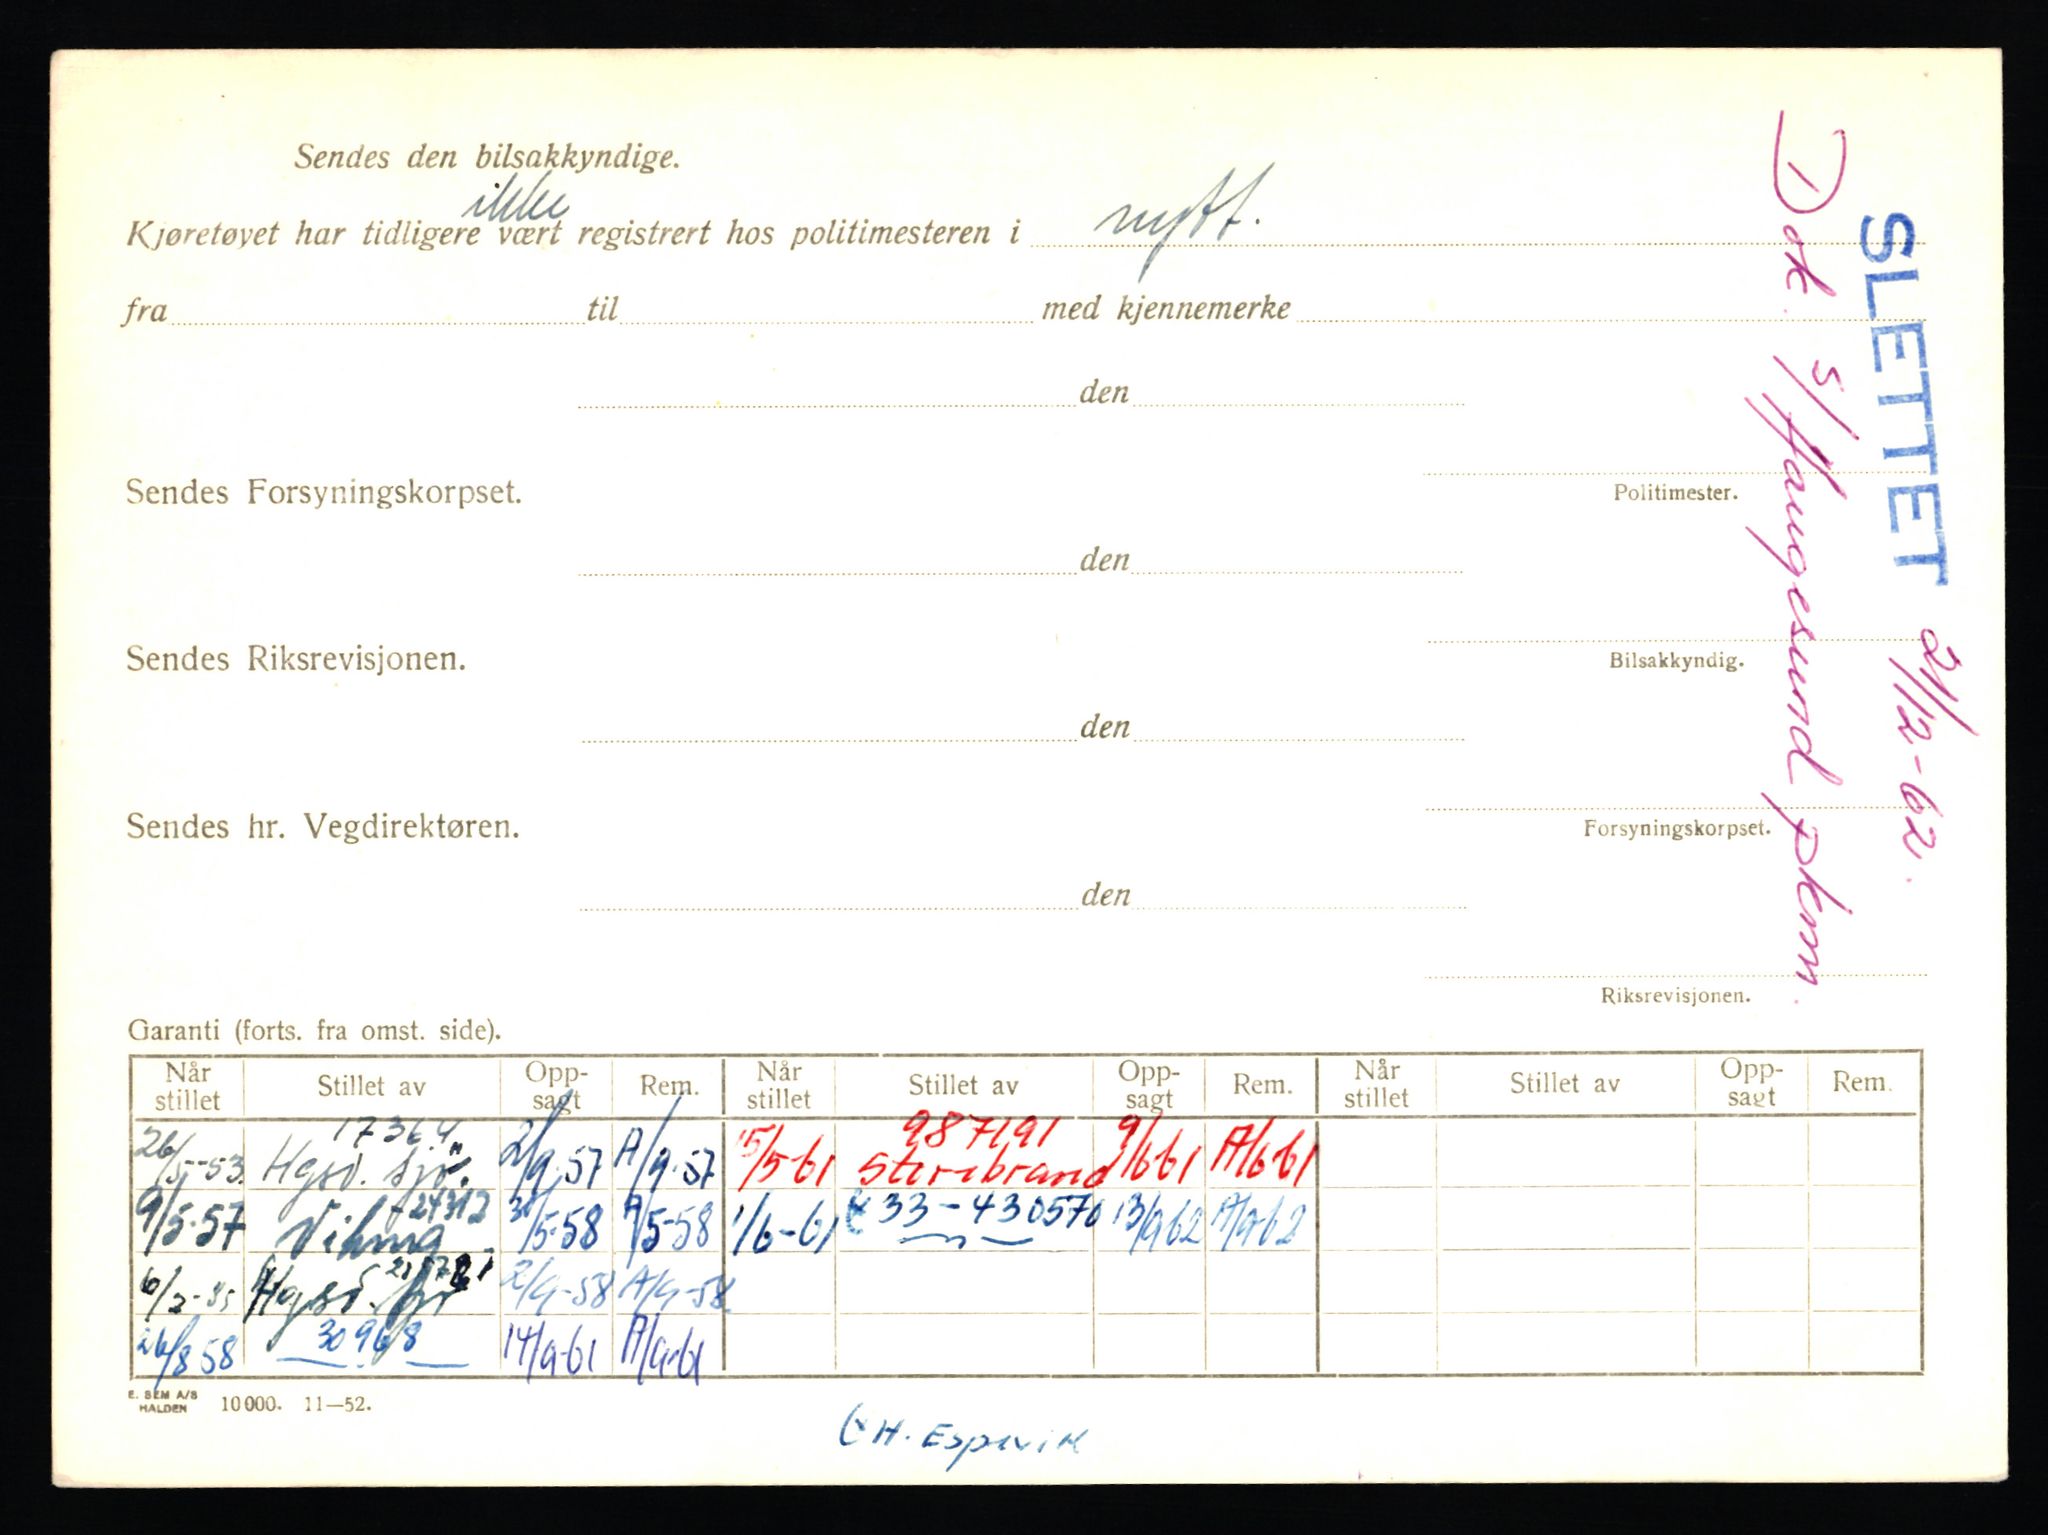 Sendes den bilsakkyndige.
ikke
Kjøretøyet har tidligere vært registrert hos politimesteren i nytt.
fra til med kjennemerke
den
Politimester.
Sendes Forsyningskorpset.
den
Bilsakkyndig.
Sendes Riksrevisjonen.
den
Forsyningskorpset.
Sendes hr. Vegdirektøren.
den
Riksrevisjonen.
Dok. s/Haugesund pkm.
SLETTET 21/12-62.
Garanti (forts. fra omst. side).
Når stillet Stillet av Opp-sagt Rem. Når stillet Stillet av Opp-sagt Rem. Når stillet Stillet av Opp-sagt Rem.
17364
26/5-53. Hgsd. sjø. 2/9-57 A/9-57 15/5-61 987191 Storebrand 9/6-61 A/6-61
9/5-57 Viking 24312 /5-58 A/5-58 1/6-61 33-430570 13/9-62 A/9-62
Hgsd. sjø 2/9-58 A/9-58
26/8 58 30968 14/9-61 A/9-61
E. SEM A/S HALDEN 10000. 11—52.
H. Espevik